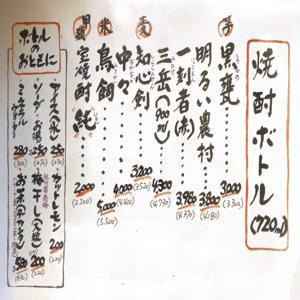 焼酎ボトル(720ml)
芋
黒甕 3,000 (3,300)
明るい農村 3,800 (4,180)
一刻者(赤) 3,980 (4,370)
三岳(900ml) 4,300 (4,730)
麦
知心剣 3,200 (3,520)
中々 4,000 (4,400)
米
鳥飼 5,000 (5,500)
甲類
宝焼酎「純」 2,000 (2,200)
ボトルのおともに
アイス(氷) 250
カットレモン 200 (220)
ソーダ お湯 250
梅干し 200 (220)
ミネラルウォーター 280
お茶